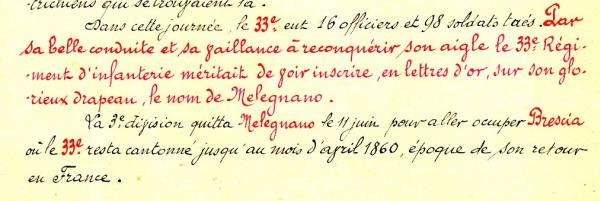 trichiens qui se trouvaient là.
Dans cette journée, le 33e eut 16 officiers et 98 soldats tués. Par
sa belle conduite et sa vaillance à reconquérir son aigle le 33e Régi-
ment d'infanterie méritait de voir inscrire, en lettres d'or, sur son glo-
rieux drapeau, le nom de Melegnano.
La 3e division quitta Melegnano le 11 juin pour aller occuper Brescia
où le 33e resta cantonné jusqu'au mois d'april 1860, époque de son retour
en France.